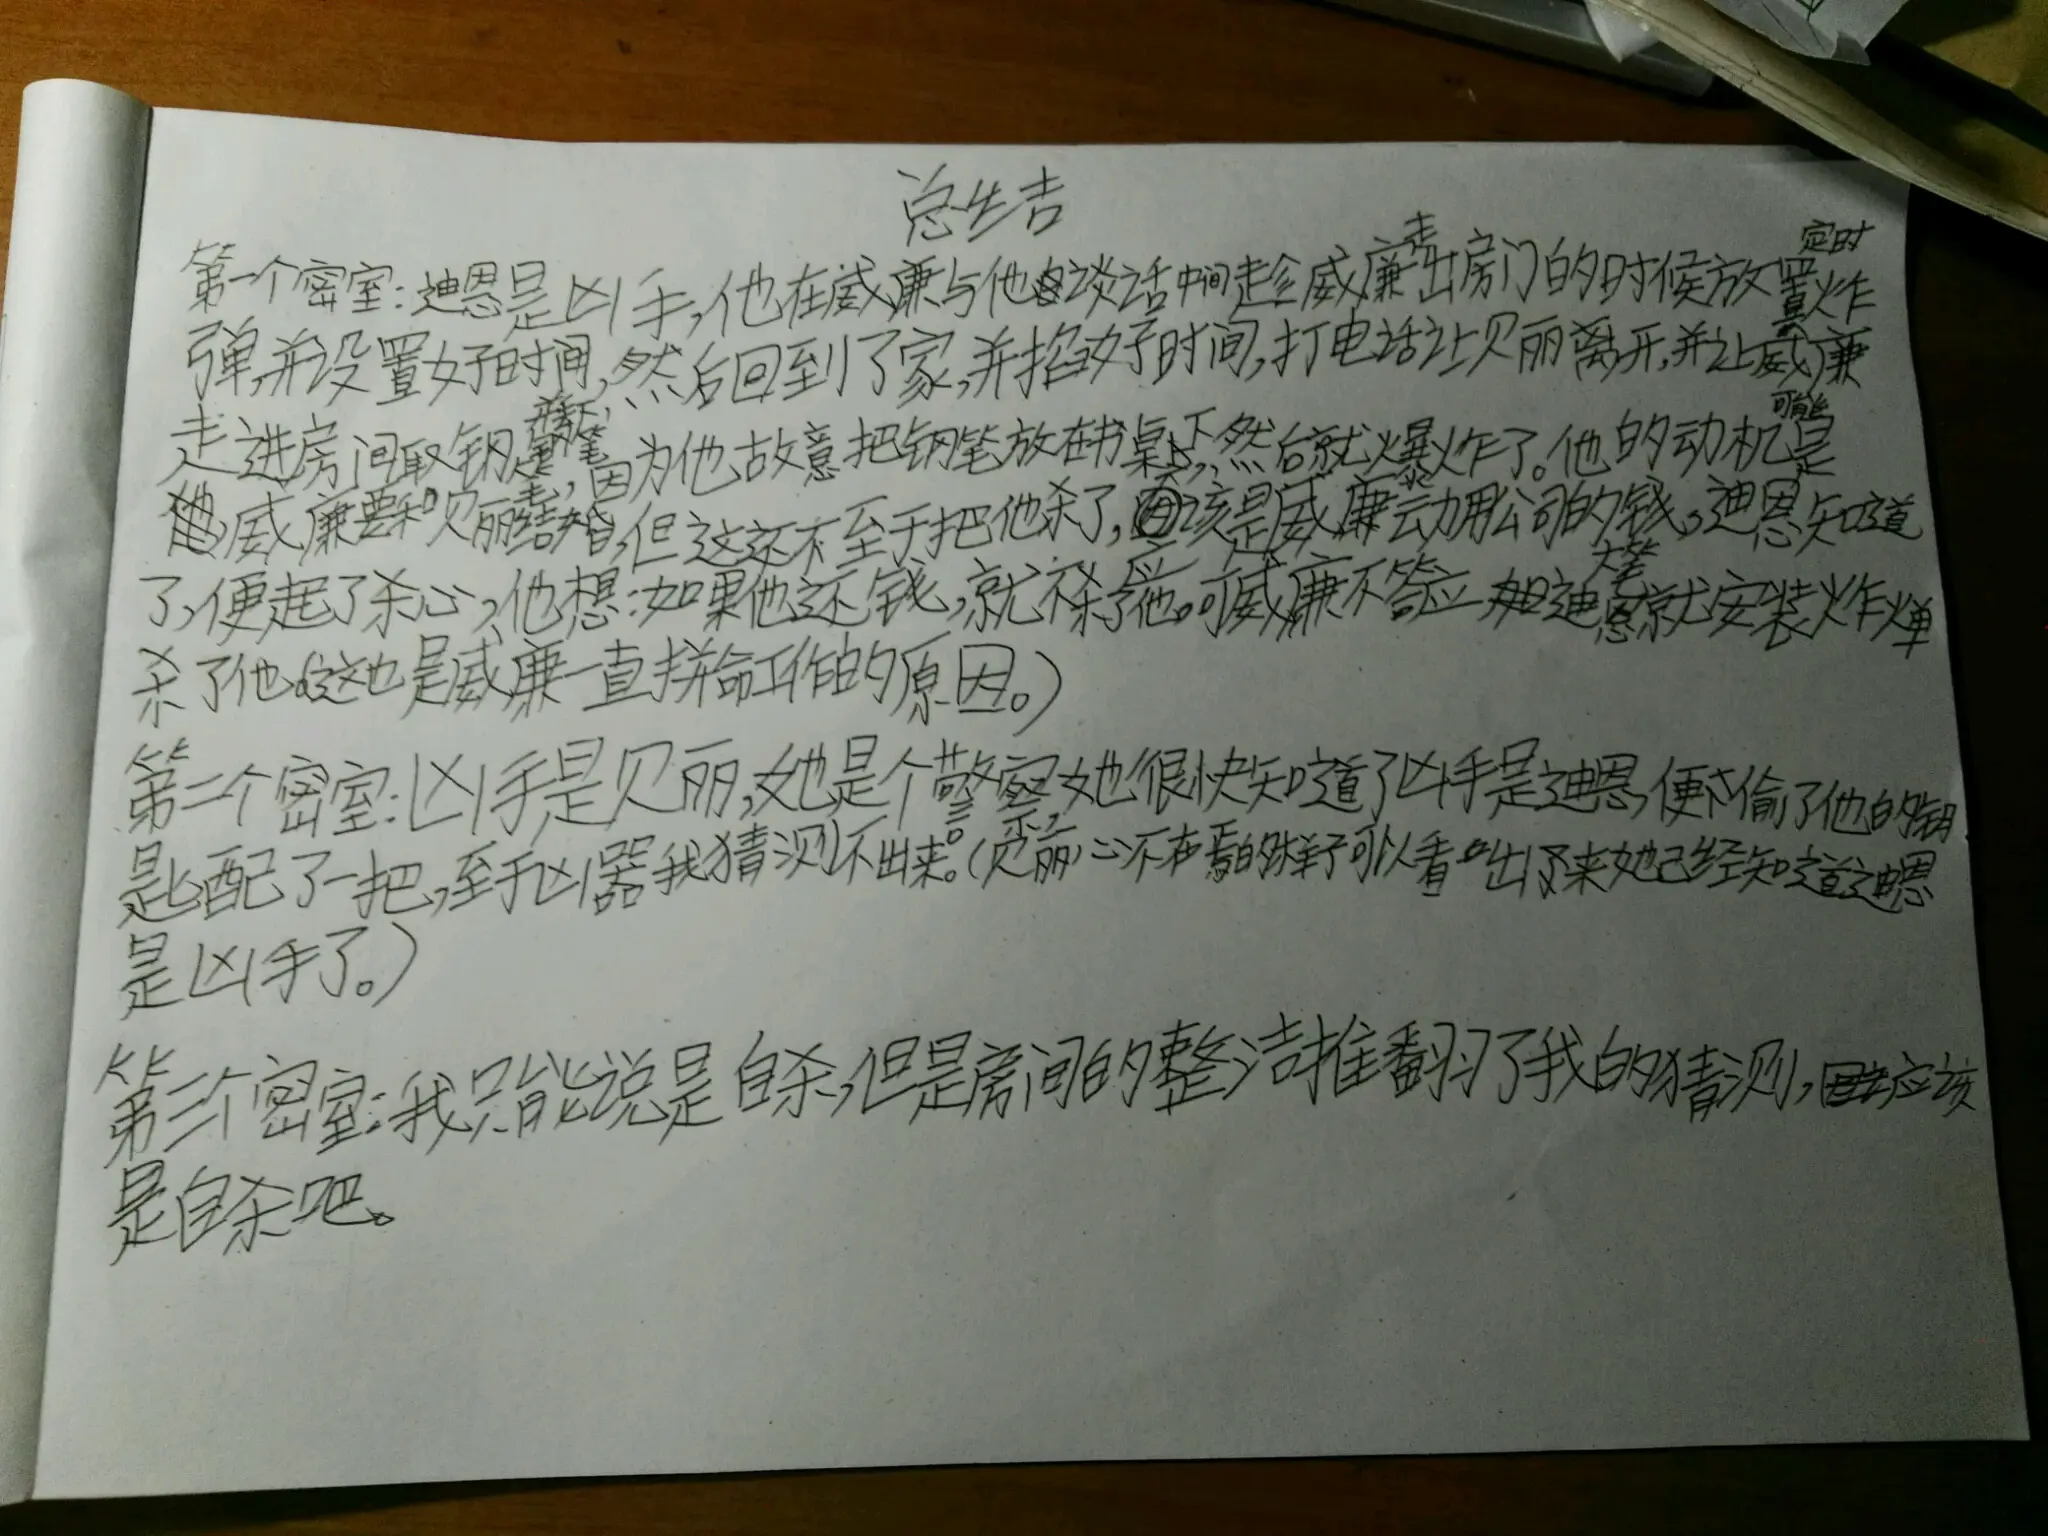 总结
第一个密室:迪恩是凶手,他在威廉与他谈话中间趁威廉走出房门的时候放置定时炸
弹,并设置好时间,然后回到了家,并掐好时间,打电话让贝丽离开,并让威廉
走进房间取钢笔,因为他故意把钢笔放在书桌下,然后就爆炸了。他的动机可能是
威廉要和贝丽结婚,但这还不至于把他杀了,应该是威廉动用公司的钱,迪恩知道
了,便起了杀心,他想:如果他还钱,就不杀他。可威廉不答应,迪恩就安装炸弹
杀了他。(这也是威廉一直拼命工作的原因。)
第二个密室:凶手是贝丽,她是个警察,她很快知道了凶手是迪恩,便偷了他的钥
匙配了一把,至于凶器我猜测不出来。(贝丽心不在焉的样子可以看出来她已经知道迪恩
是凶手了。)
第三个密室:我只能说是自杀,但是房间的整洁推翻了我的猜测,应该
是自杀吧。